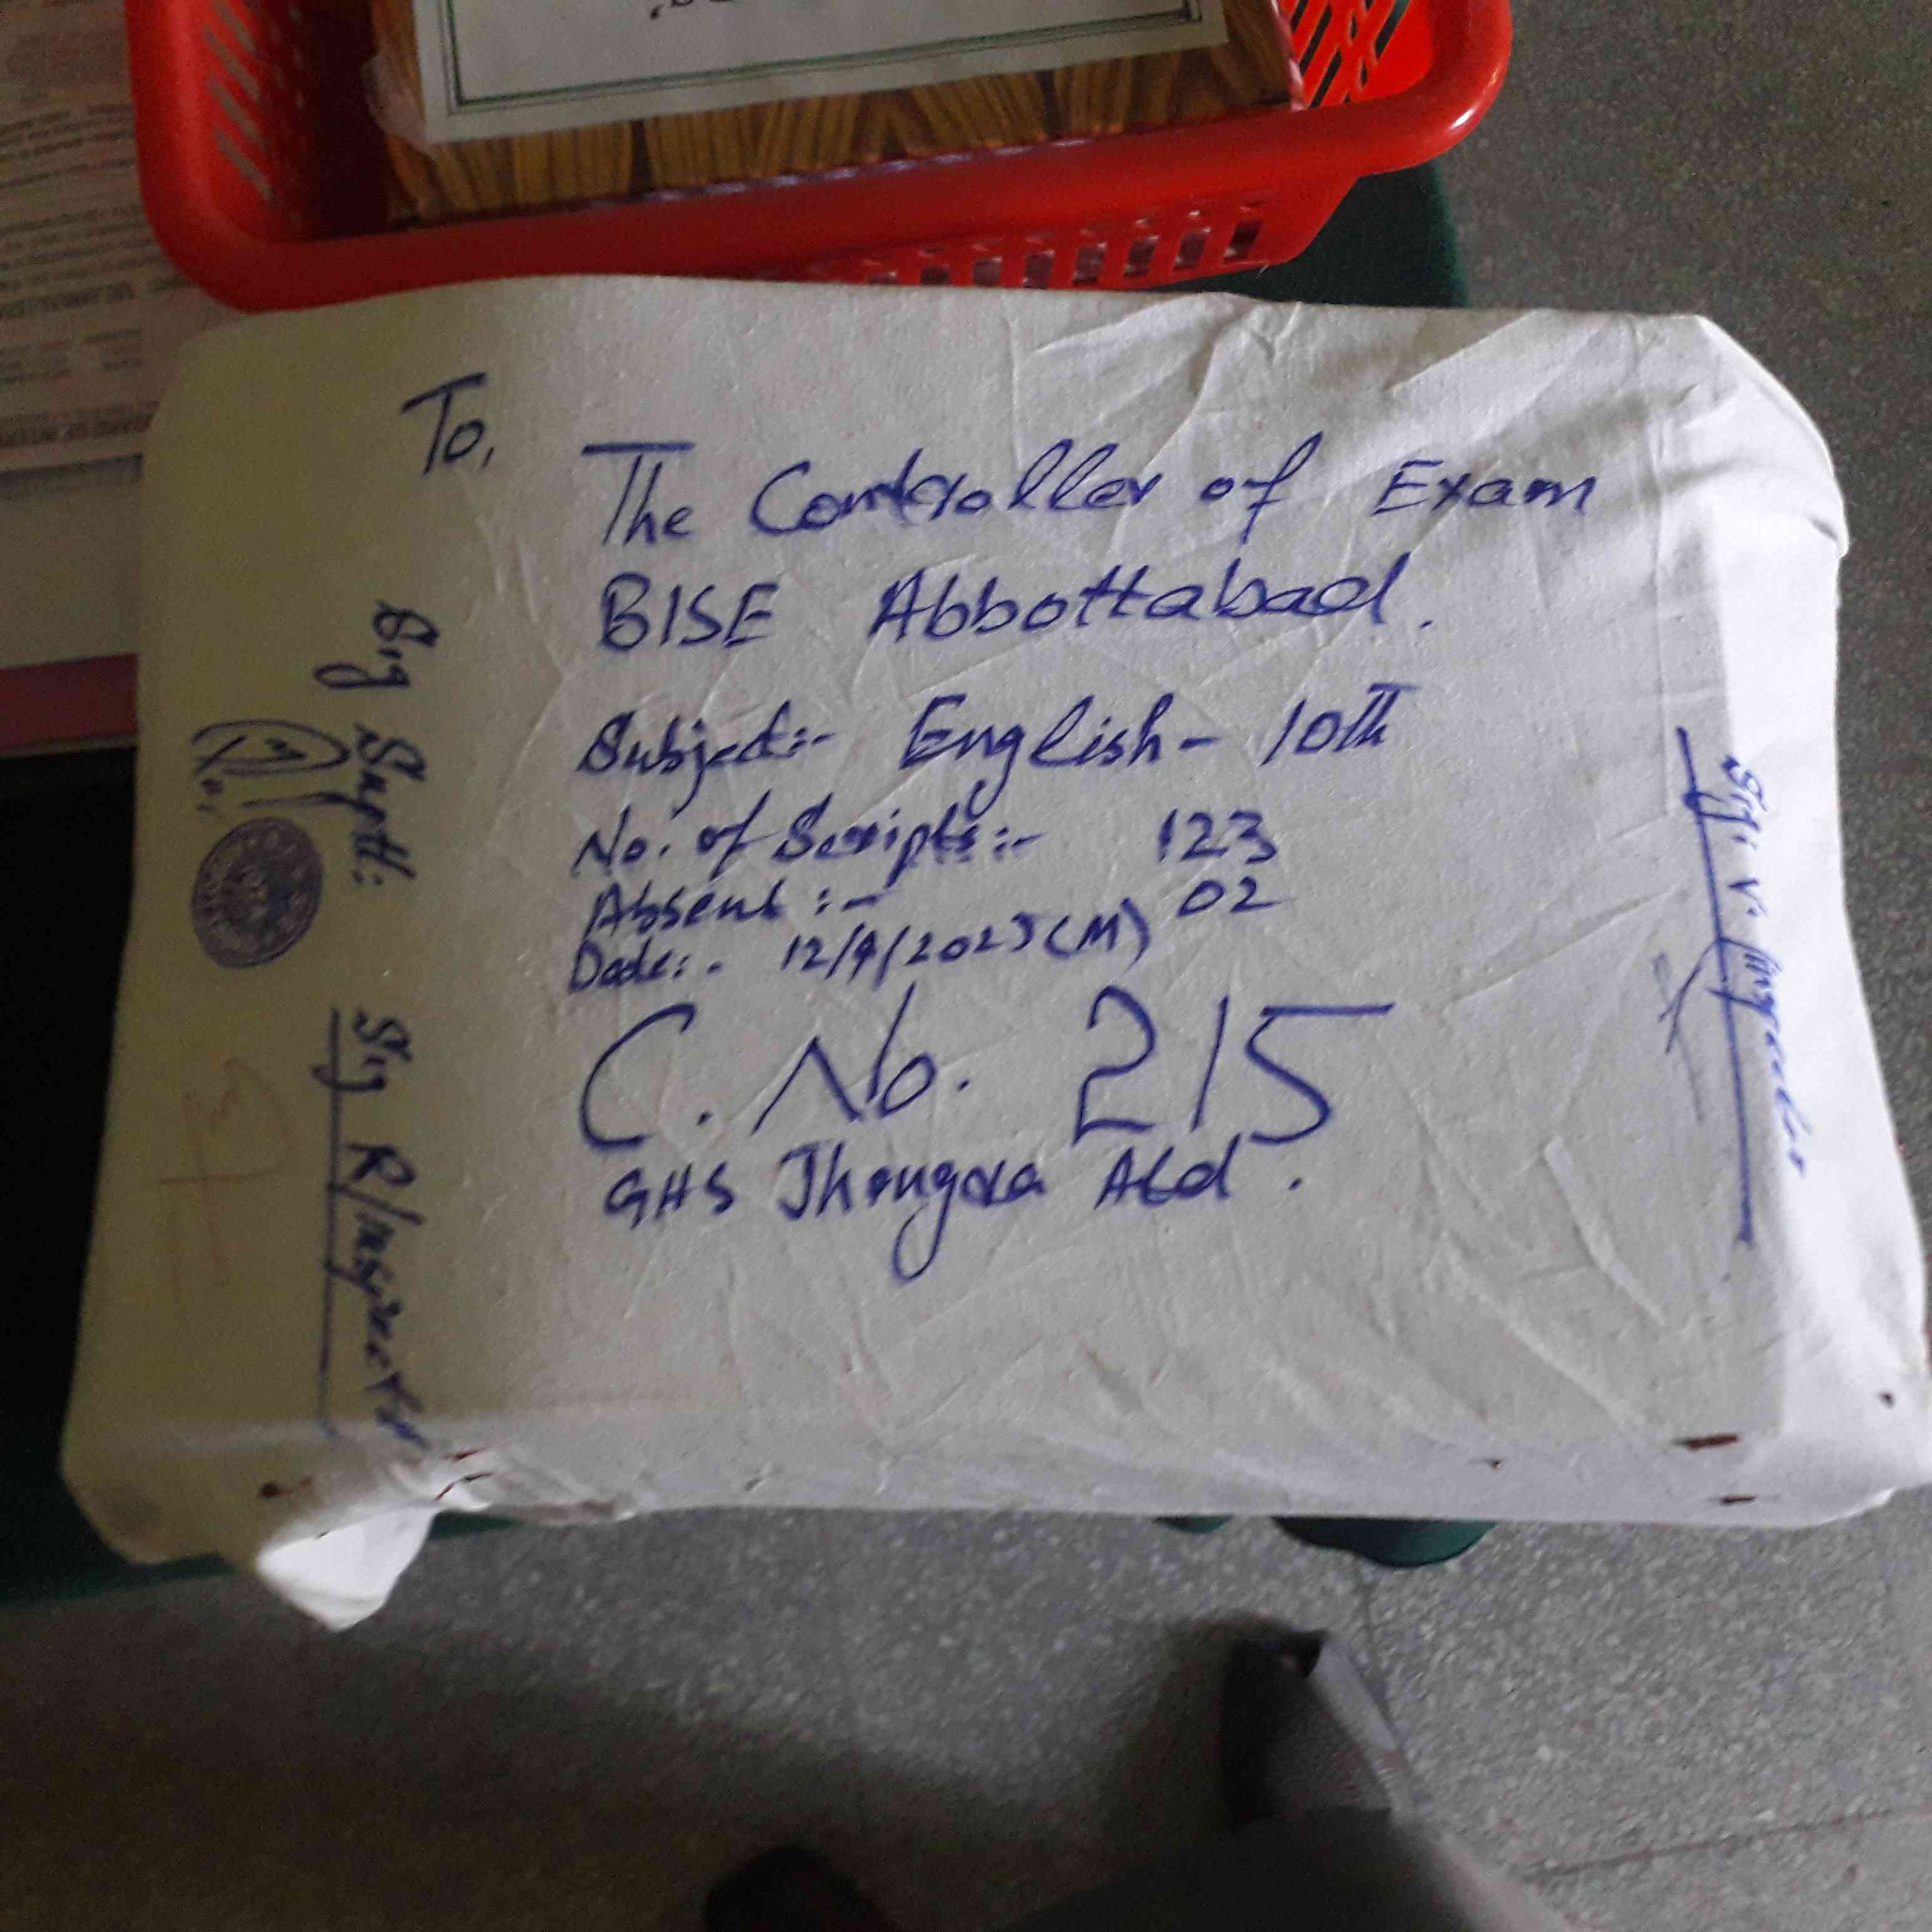 To,
The Controller of Exam
BISE Abbottabad.
Subject:- English - 10th
No. of Scripts:- 123
Absent:- 02
Date:- 12/4/2023 (M)
C. No. 215
GHS Jhangra Atd.
Sig Suptt:
Sig R/Inspector
Sig. V. Inspector